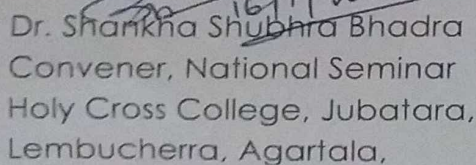 Dr. Shankha Shubhra Bhadra
Convener, National Seminar
Holy Cross College, Jubatara,
Lembucherra, Agartala,